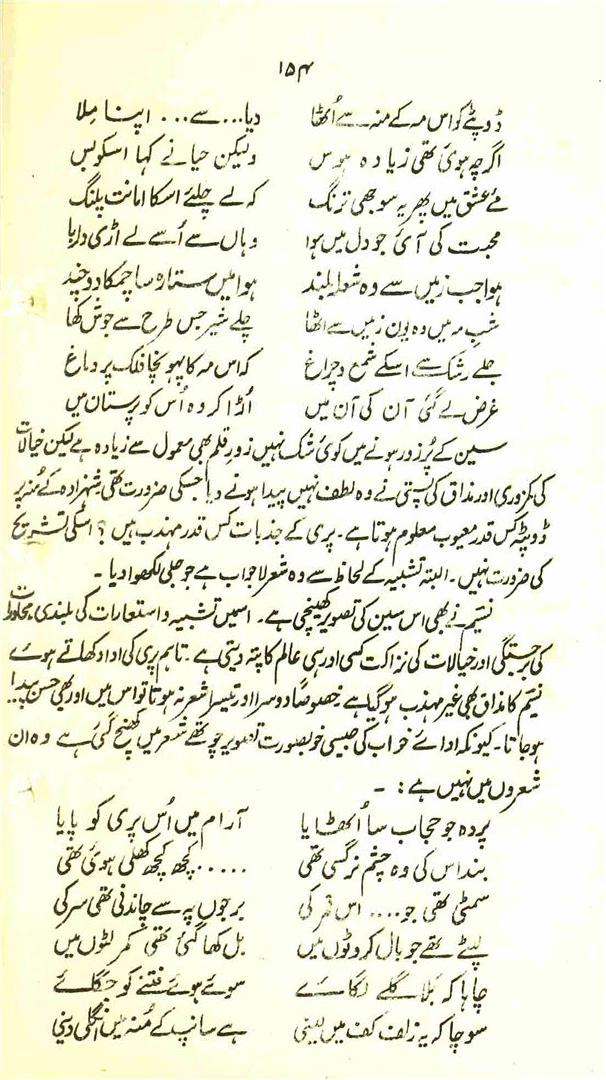 ۱۵۴
ڈوپٹے کو اس مہ کے منہ سے اُٹھا دیا...سے... اپنا مِلا
اگرچہ ہوئی تھی زیادہ ہوس ولیکن حیا نے کہا اسکو بس
مۓ عشق میں پھر یہ سوجھی ترنگ کہ لے چلئے اسکا امانت پلنگ
محبت کی آئی جو دل میں ہوا وہاں سے اُسے لے اڑی دلربا
ہوا جب زمیں سے وہ شعلہ بلند ہوا میں ستارہ سا چمکا دو چند
شبِ مہ میں وہ یوں زمیں سے اٹھا چلے شیر جس طرح سے جوش کھا
جلے رشک سے اسکے شمع و چراغ کہ اس مہ کا پہونچا فلک پر دماغ
غرض لے گئی آن کی آن میں اُڑا کر وہ اُس کو پرستان میں
سین کے پُر زور ہونے میں کوئی شک نہیں زورِ قلم بھی معمول سے زیادہ ہے لیکن خیالات
کی کمزوری اور مذاق کی پستی نے وہ لطف نہیں پیدا ہونے دیا جسکی ضرورت تھی شہزادہ کے مُنہ پر
ڈوپٹہ کس قدر معیوب معلوم ہوتا ہے۔ پری کے جذبات کس قدر مہذب ہیں؟ اسکی تشریح
کی ضرورت نہیں۔ البتہ تشبیہ کے لحاظ سے وہ شعر لاجواب ہے جو جلی لکھوا دیا۔
نسیم نے بھی اس سین کی تصویر کھینچی ہے۔ اسمیں تشبیہ و استعارات کی بلندی محاورات
کی برجستگی اور خیالات کی نزاکت کسی اور ہی عالم کا پتہ دیتی ہے۔ تاہم پری کی ادا دکھاتے ہوے
نسیم کا مذاق بھی غیر مہذب ہو گیا ہے خصوصاً دوسرا اور تیسرا شعر نہ ہوتا تو اس میں اور بھی حسن پیدا
ہو جاتا۔ کیونکہ اداۓ خواب کی جیسی خوبصورت تصویر چوتھے شعر میں کھنچ گئی ہے وہ ان
شعروں میں نہیں ہے:۔
پردہ جو حجاب سا اُٹھایا آرام میں اُس پری کو پایا
بند اس کی وہ چشم نرگسی تھی .....کچھ کچھ کھلی ہوئی تھی
سمٹی تھی جو.... اس قمر کی برجوں پہ سے چاندنی تھی سرکی
لپٹے تھے جو بال کروٹوں میں بل کھا گئی تھی کمر لٹوں میں
چاہا کہ بَلا گلے لگائے سوتے ہوئے فتنے کو جگائے
سوچا کہ یہ زلف کف میں لینی ہے سانپ کے مُنہ میں انگلی دینی